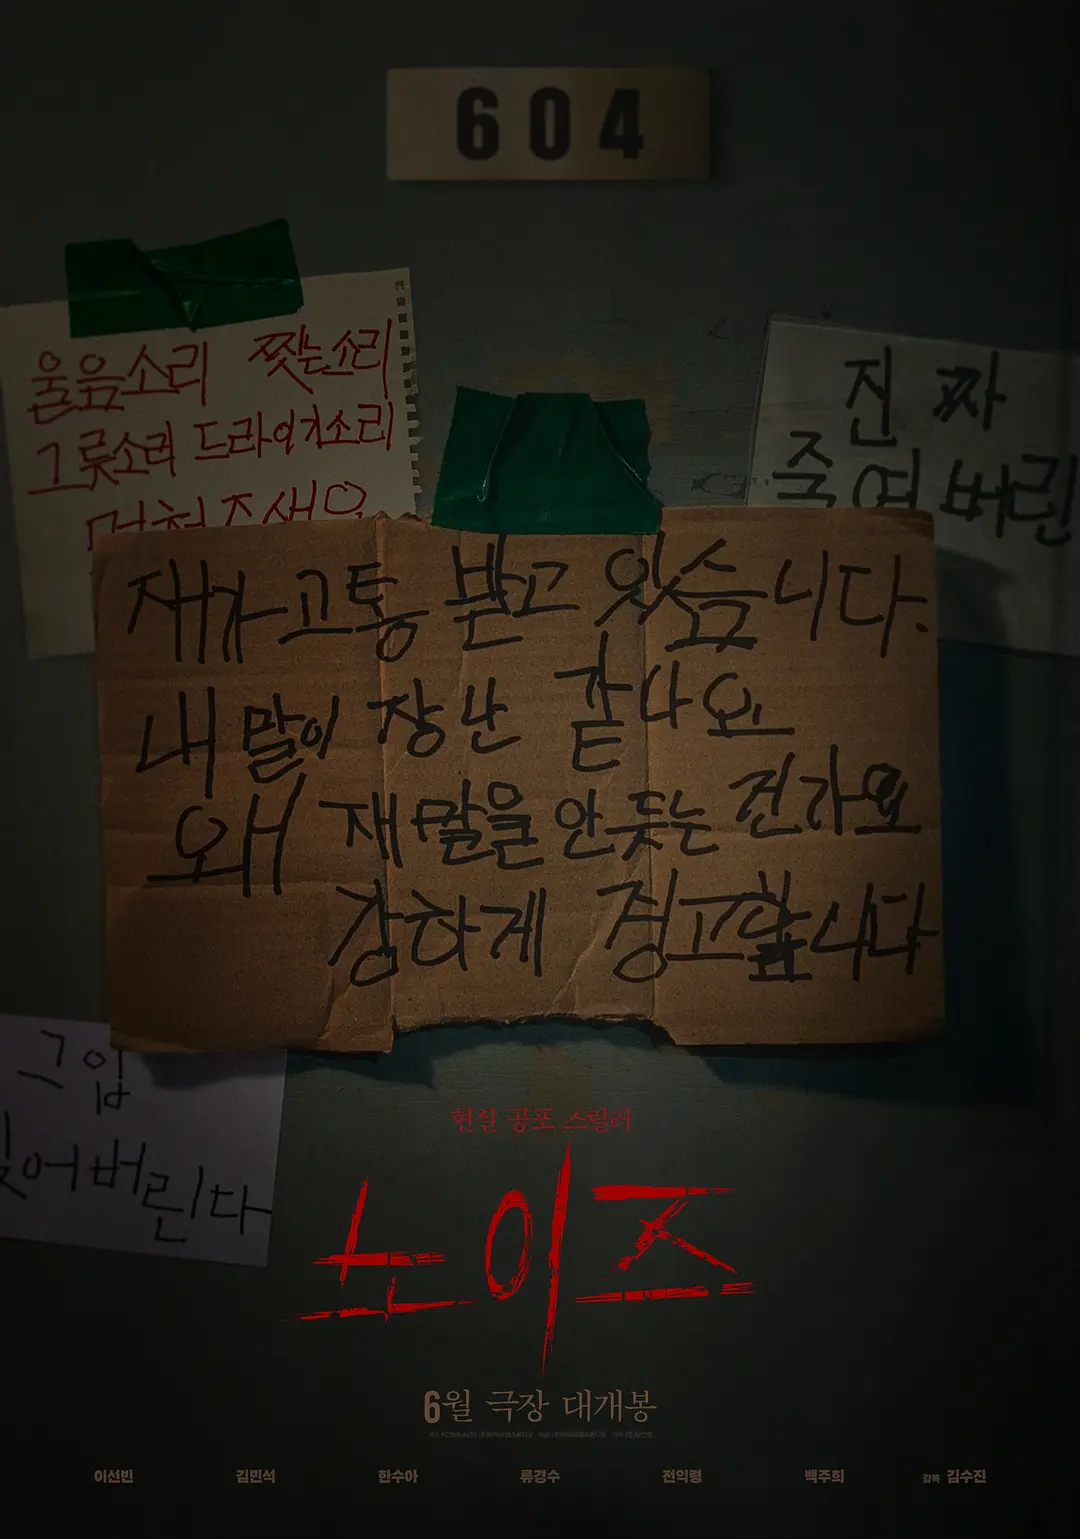 604
울음소리 찟는소리
그릇소리 드라이기소리
멈춰주세요
진짜
죽여버린
재가 고통 받고 있습니다.
내 말이 장난 같나요
왜 재 말을 안듯는 건가요
강하게 경고합니다
그입
찢어버린다
현실 공포 스릴러
노이즈
6월 극장 대개봉
이선빈 김민석 한수아 류경수 전익령 백주희 감독 김수진